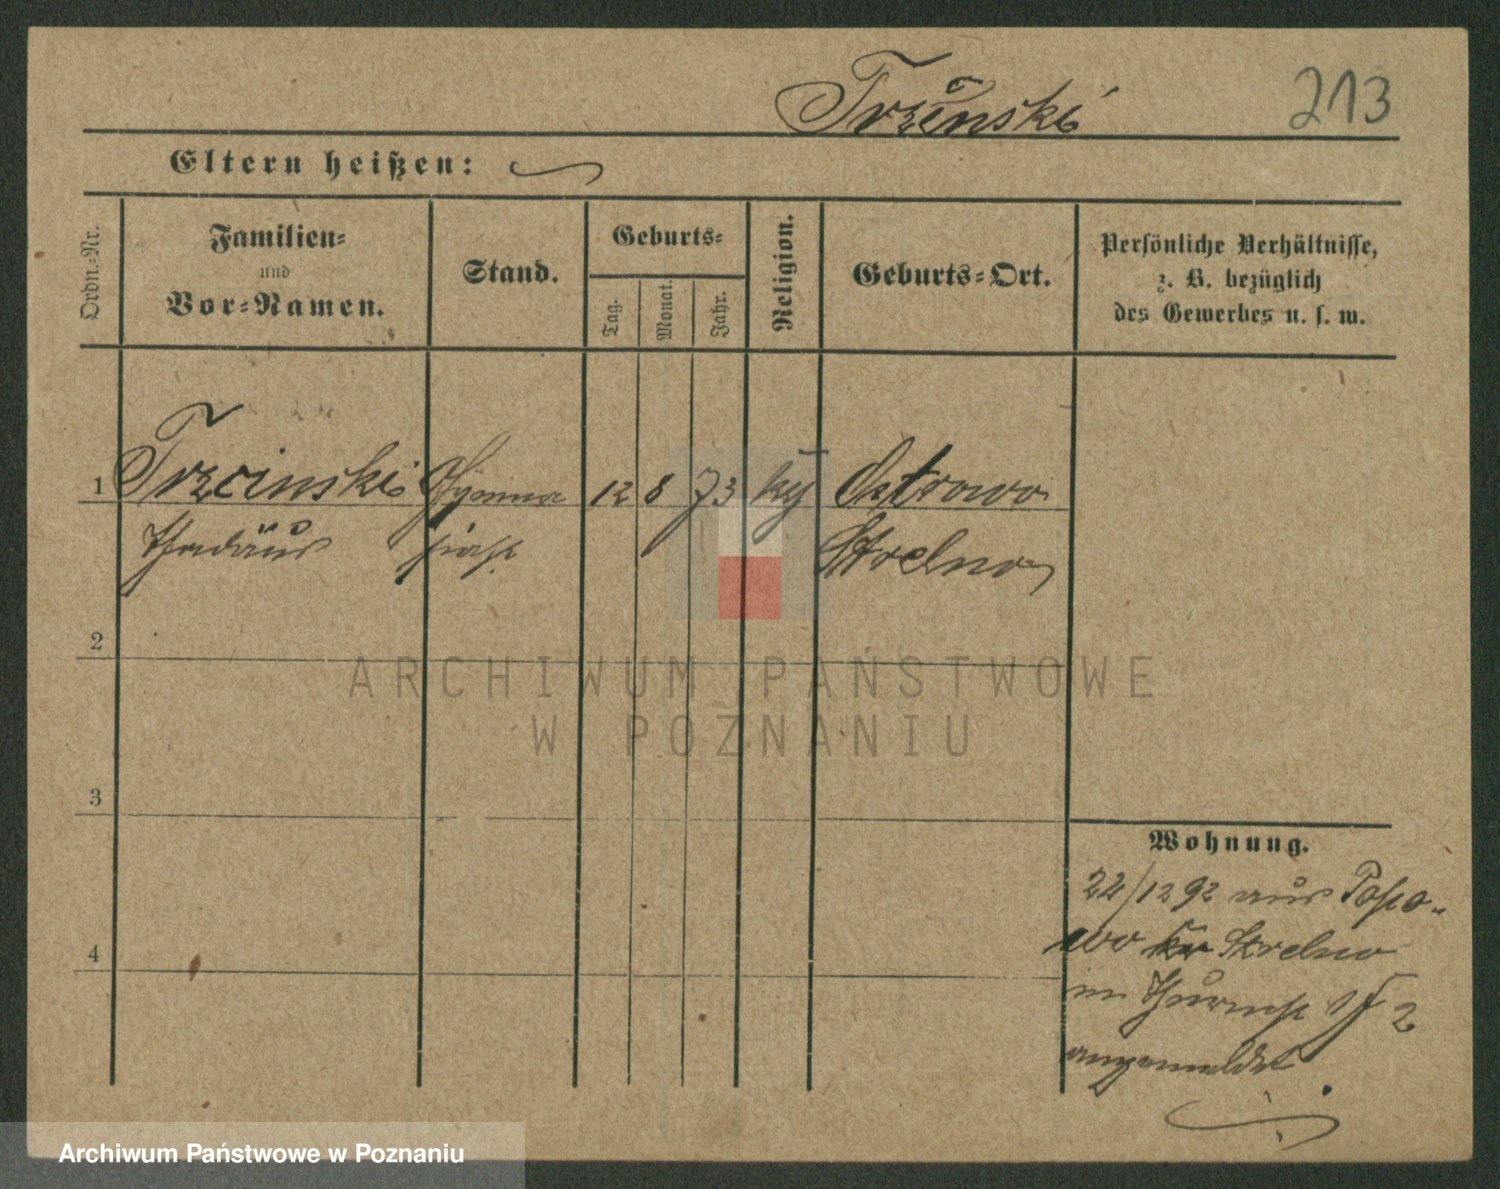 Trzinski
213
Eltern heißen:
Ordn.-Nr.
Familien-
und
Vor-Namen.
Stand.
Geburts-
Tag.
Monat.
Jahr.
Religion.
Geburts-Ort.
Persönliche Verhältnisse,
z. B. bezüglich
des Gewerbes u. s. w.
1 Trzcinski Gymna 12 8 73 Ostrowo
Thadäus siast Strelno
2
3
4
Wohnung.
22/12 92 aus Popo-
wo Kr Strelno
angemeldet
ARCHIWUM PAŃSTWOWE
W POZNANIU
Archiwum Państwowe w Poznaniu